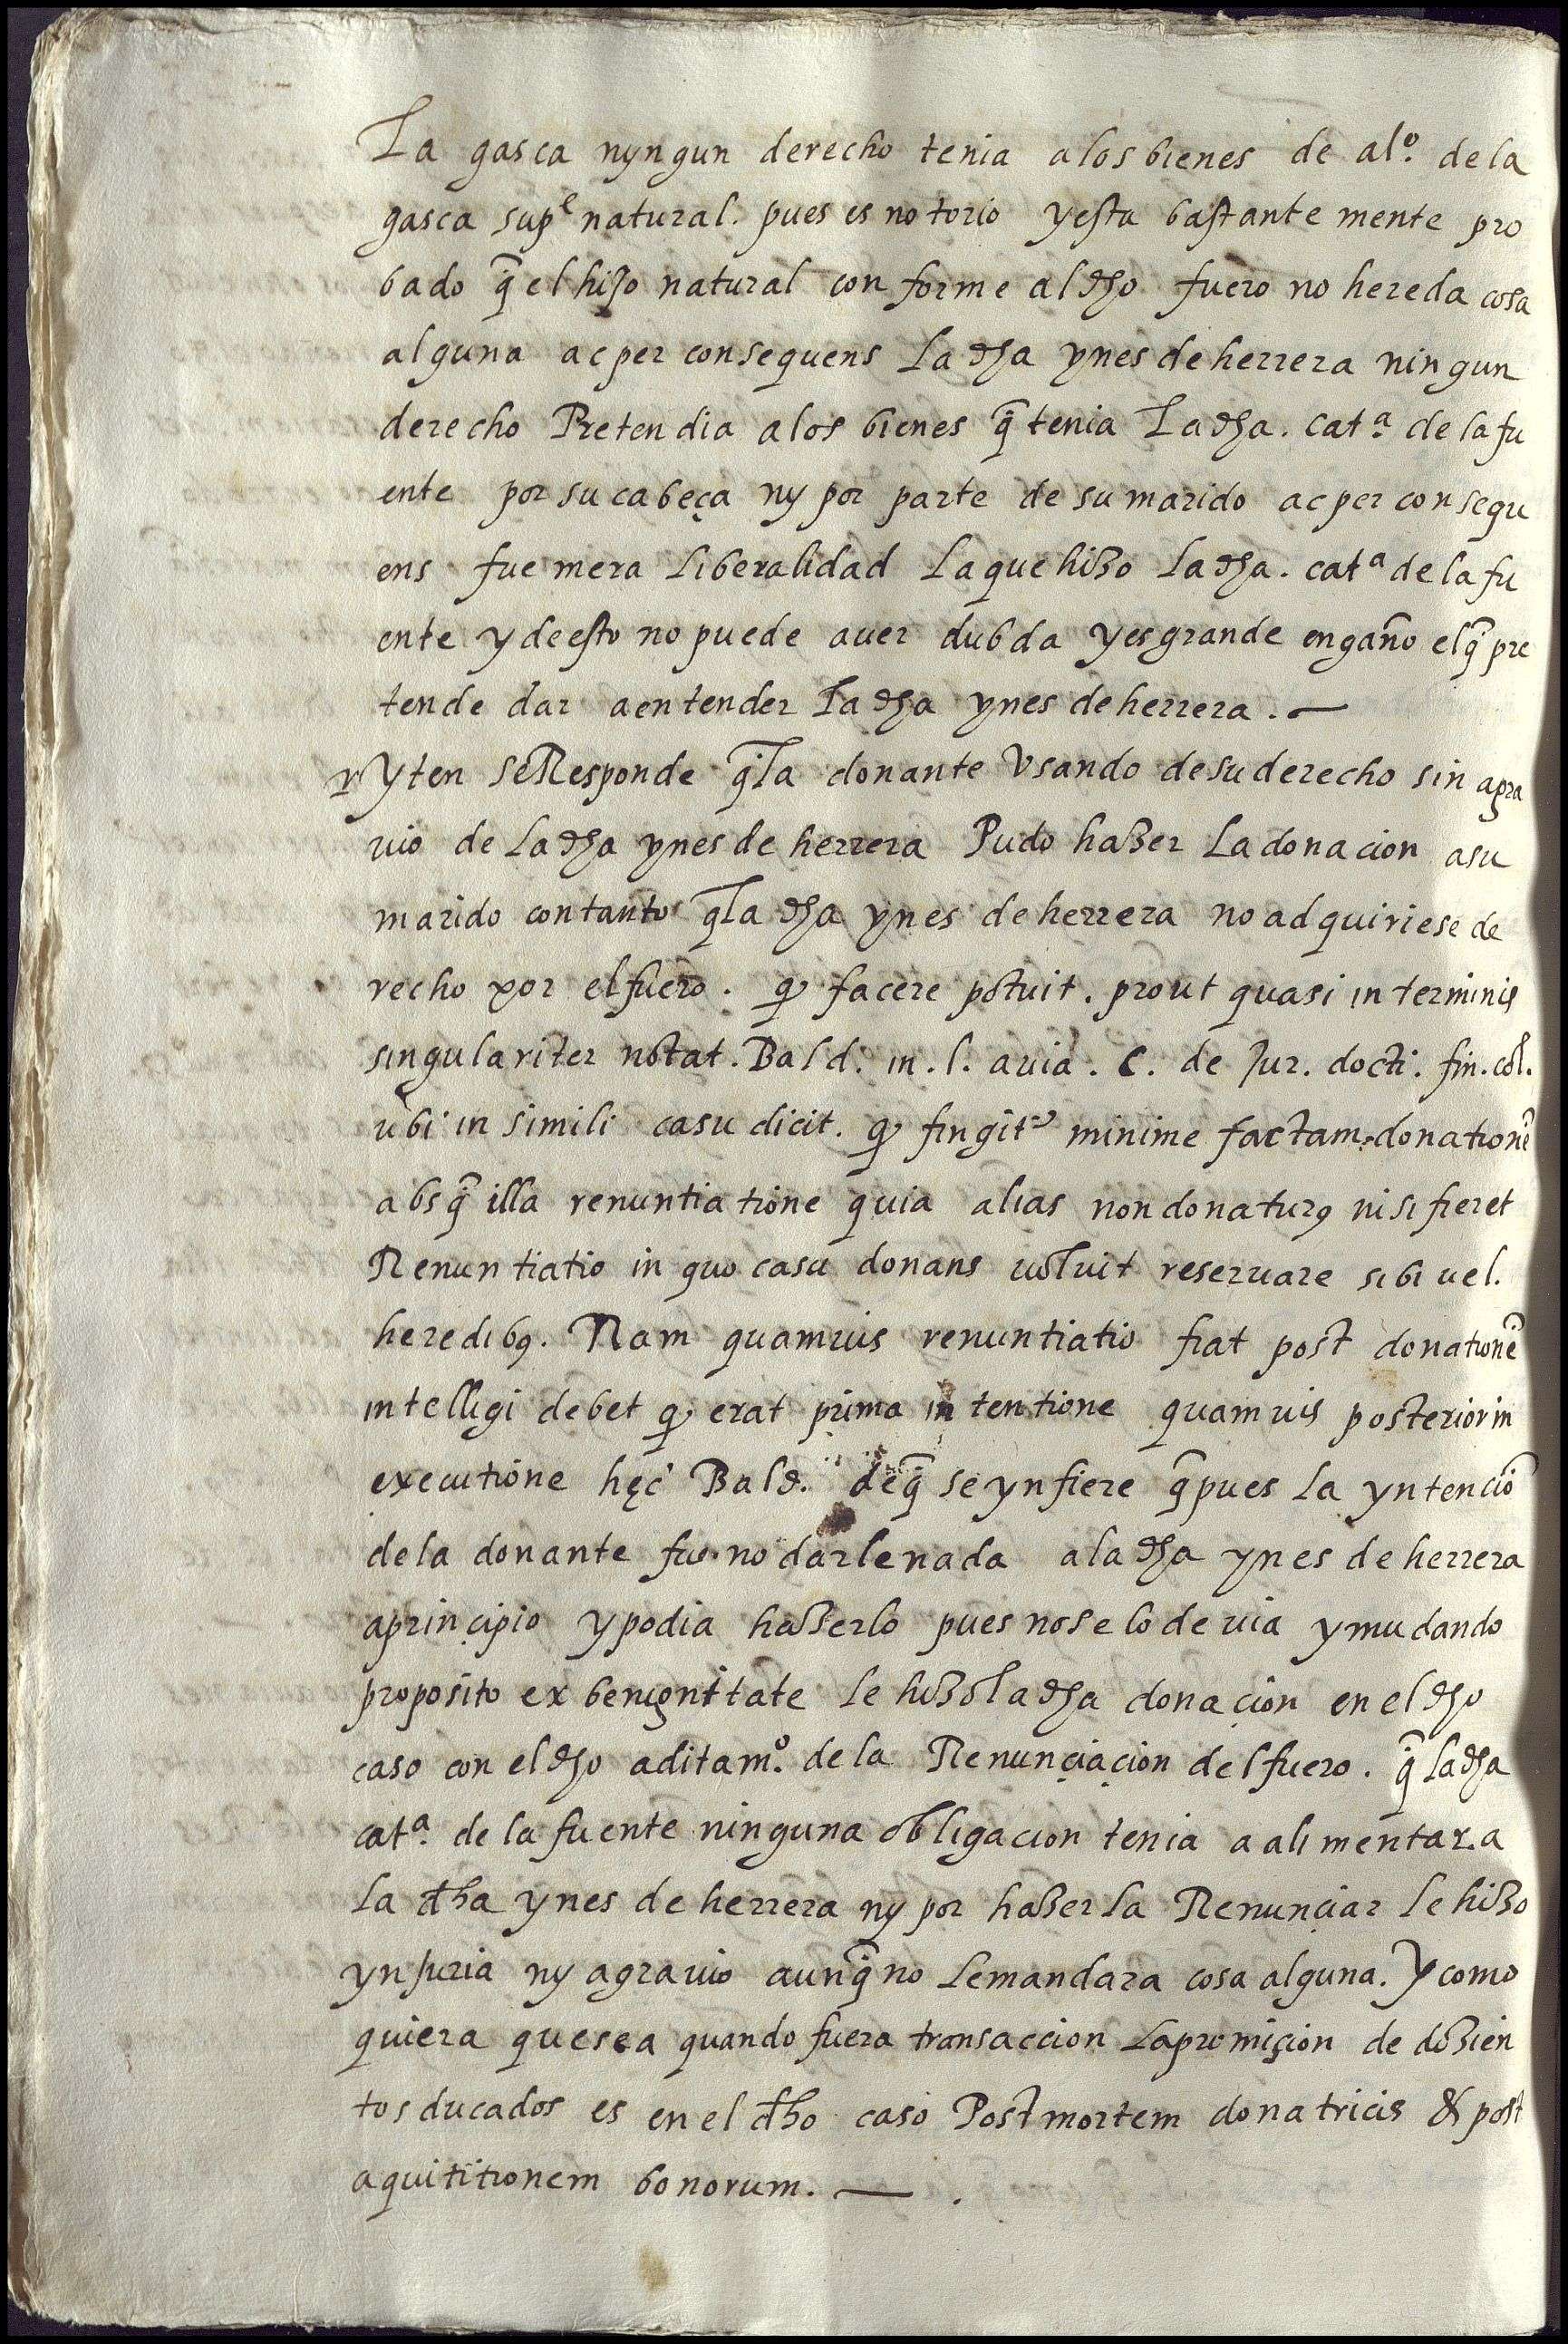 La gasca nyngun derecho tenia a los bienes de alº. de la
gasca supe natural. pues es notorio y esta bastante mente pro
bado q̃ el hijo natural conforme al dho fuero no hereda cosa
alguna ac per consequens La dha ynes de herrera ningun
derecho Pretendia a los bienes q̃ tenia La dha. catª de la fu
ente por su cabeça ny por parte de su marido ac per consequ
ens fue mera Liberalidad La que hizo La dha. catª de la fu
ente y de esto no puede auer dubda y es grande engaño el q̃ pre
tende dar a entender La dha ynes de herrera. —
Yten se Responde q̃ la donante Vsando de su derecho sin agra
uio de La dha ynes de herrera Pudo hazer La donacion a su
marido con tanto q̃ la dha ynes de herrera no adquiriese de
recho por el fuero. qđ facere potuit. prout quasi in terminis
singulariter notat. Bald. in. l. auia. C. de Jur. docti. fin. col.
ubi in simili casu dicit. qđ fingitᵉ minime factam donationẽ
absq̃ illa renuntiatione quia alias non donaturꝯ nisi fieret
Renuntiatio in quo casu donans uoluit reseruare sibi uel.
heredibꝯ. Nam quamuis renuntiatio fiat post donationẽ
intelligi debet qđ erat prima in tentione quamuis posterior in
executione hęc Bald. de q̃ se ynfiere q̃ pues La yntenciõ
de la donante fue no darle nada a la dha ynes de herrera
a principio y podia hazerlo pues no se lo deuia y mudando
proposito ex benignitate le hizo la dha donaçion en el dho
caso con el dho aditamº. de la Renunçiaçion del fuero. q̃ la dha
catª. de la fuente ninguna obligacion tenia a alimentar. a
La dha ynes de herrera ny por hazerla Renunçiar le hizo
ynjuria ny agrauio aunq̃ no Le mandara cosa alguna. Y como
quiera que sea quando fuera transaccion La promiçion de dozien
tos ducados es en el dho caso Post mortem donatricis & post
aquititionem bonorum. — .